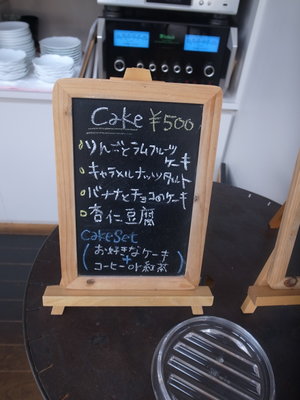 Cake ¥500
りんごとラムフルーツ
ケーキ
キャラメルナッツタルト
バナナとチョコのケーキ
杏仁豆腐
cakeset
(お好きなケーキ
+
コーヒーor紅茶)